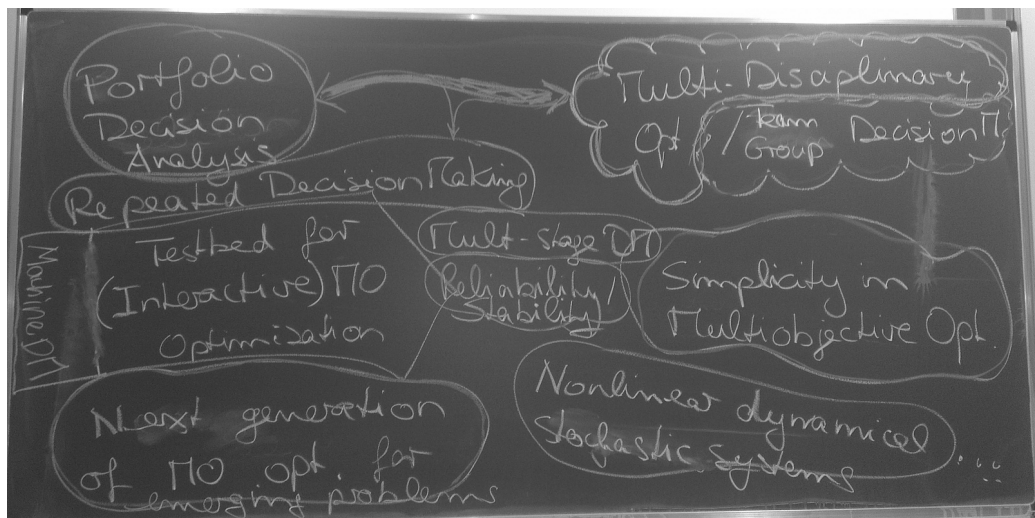 Portfolio
Decision
Analysis
Multi-Disciplinary
Opt / Team Decision M.
Group
Repeated Decision Making
Machine DM
Testbed for
(Interactive) MO
Optimization
Mult-stage DM
Reliability/
Stability
Simplicity in
Multiobjective Opt.
Next generation
of MO opt. for
emerging problems
Nonlinear dynamical
stochastic systems ...